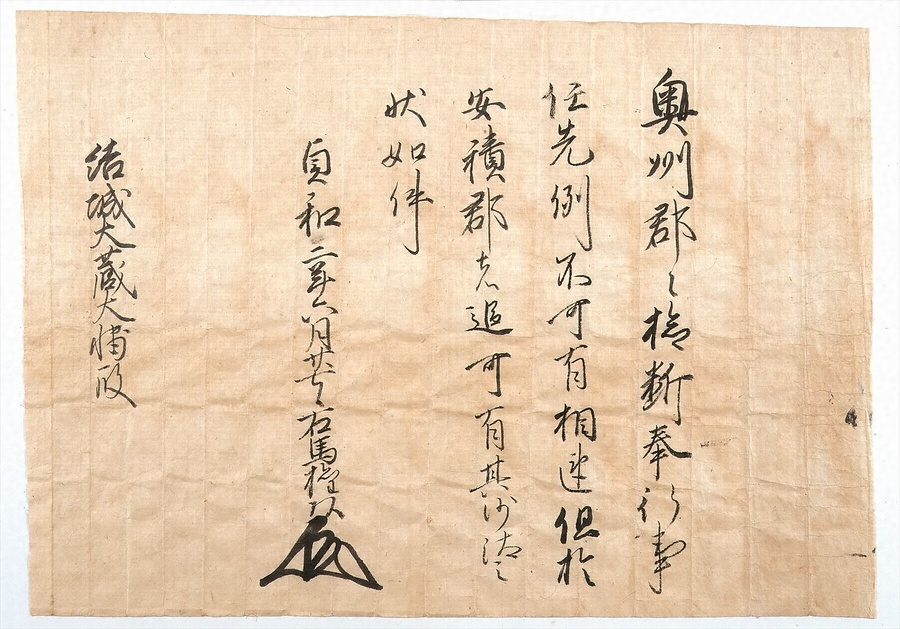 奥州郡々検断奉行事
任先例不可有相違但於
安積郡者追可有其沙汰之
状如件
貞和二年六月廿七日右馬権頭
結城大蔵大輔殿